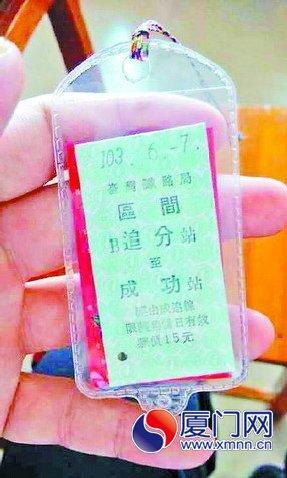 103. 6. -7.
臺灣鐵路局
區間
B追分站
至
成功站
限當日有效
票價15元
厦门网
www.xmnn.cn